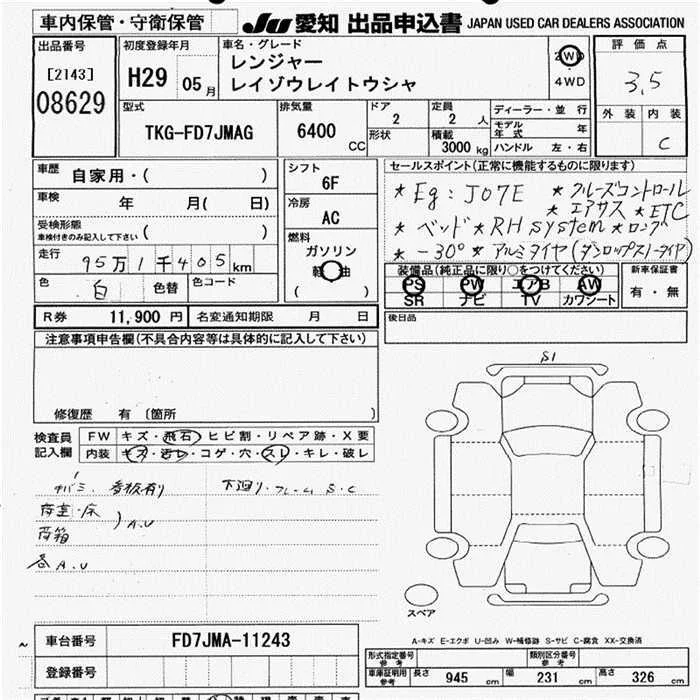 車内保管・守衛保管
JU 愛知 出品申込書 JAPAN USED CAR DEALERS ASSOCIATION
出品番号
[2143]
08629
初度登録年月
H29 05月
車名・グレード
レンジャー
レイゾウレイトウシャ
2WD
4WD
評価点
3.5
外装 内装
C
型式
TKG-FD7JMAG
排気量
6400 CC
ドア
2
形状
定員
2 人
積載
3000 kg
ディーラー・並行
モデル年式 年
ハンドル 左・右
車歴
自家用・( )
車検 年 月( 日)
受検形態
車検付きのみ記入して下さい ( )
走行
95万1千405km
色 白 色替 色コード
シフト
6F
冷房
AC
燃料
ガソリン
軽油
( )
セールスポイント(正常に機能するものに限ります)
* Eg:J07E * クルーズコントロール
* エアサス * ETC
* ベッド * RH system * ロング
* -30° * アルミタイヤ(ダンロップスノータイヤ)
装備品(純正品に限り○をつけてください)
PS PW エアB AW
SR ナビ TV カワシート
新車保証書
有・無
R券 11,900 円 名変通知期限 月 日
後日品
注意事項申告欄(不具合内容等は具体的に記入して下さい)
修復歴 有 〔箇所 〕
検査員記入欄
FW キズ・飛石・ヒビ割・リペア跡・X要
内装 キズ・汚レ・コゲ・穴・スレ・キレ・破レ
看板有り 下廻り・フレーム S・C
荷室・床
荷箱
A.U
各 A.U
S1
スペア
A-キズ E-エクボ U-凹み W-補修跡 S-サビ C-腐食 XX-交換済
車台番号 FD7JMA-11243
登録番号
形式指定番号 参考
類別区分番号 参考
車庫証明用 参考
長さ 945 cm 幅 231 cm 高さ 326 cm